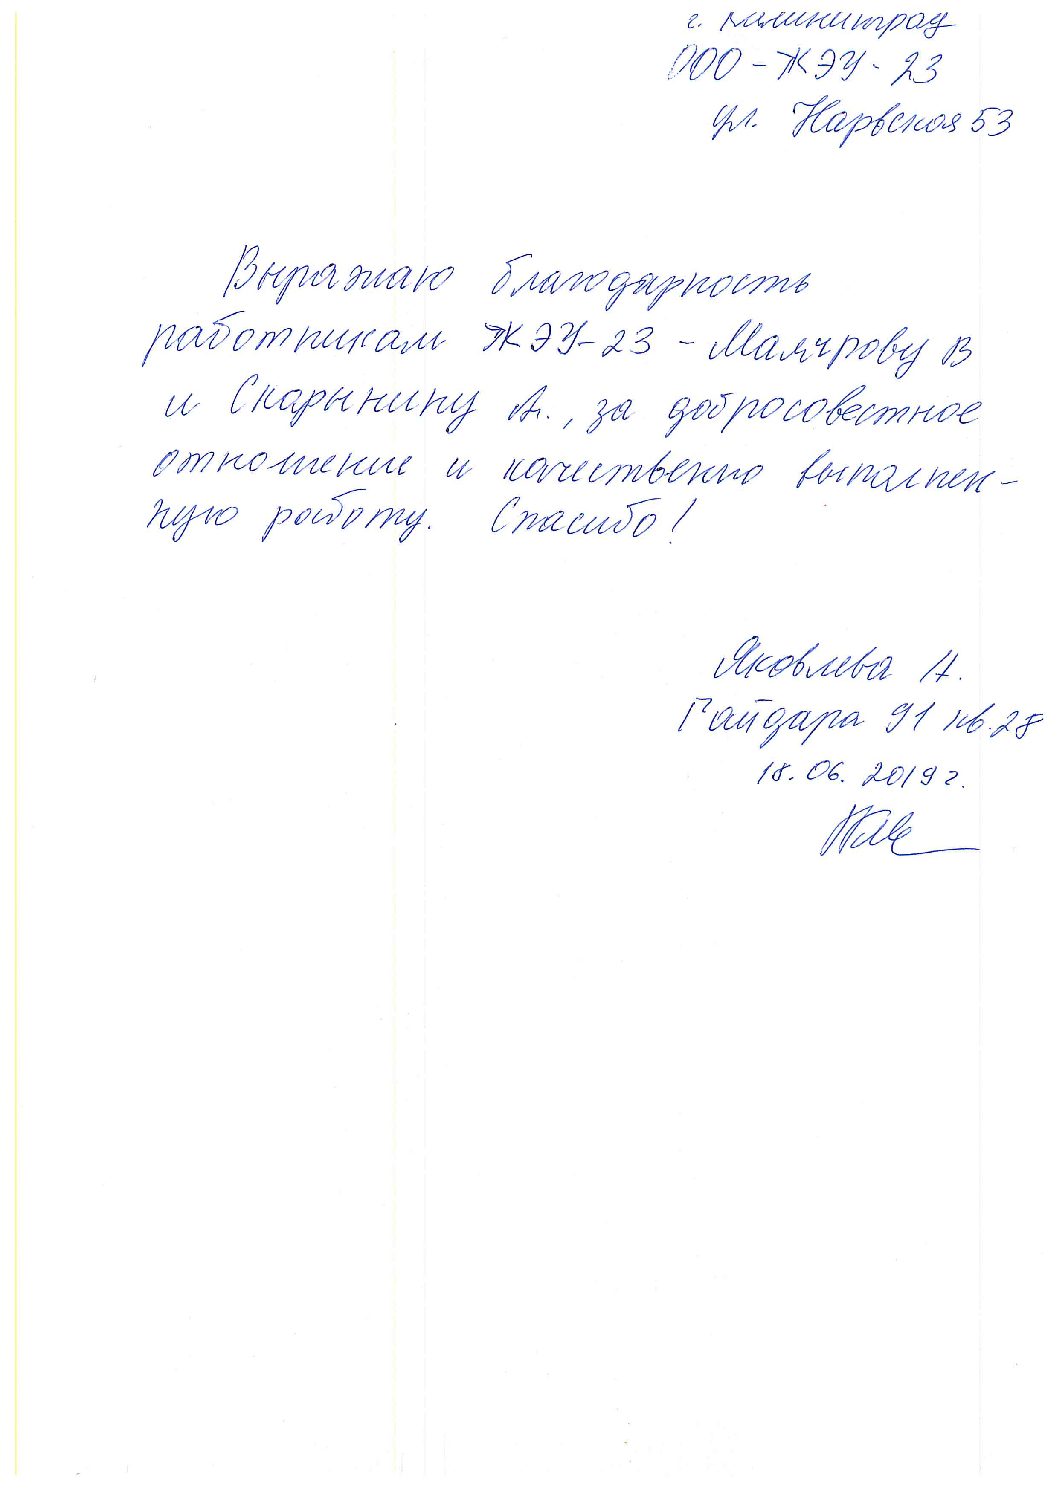 г. Калининград
ООО - ЖЭУ - 23
ул. Нарвская 53
Выражаю благодарность
работникам ЖЭУ-23 - В
и Скарынину А., за добросовестное
отношение и качественно выполнен-
ную работу. Спасибо!
Яковлева А.
Гайдара 91 кв. 28
18. 06. 2019 г.